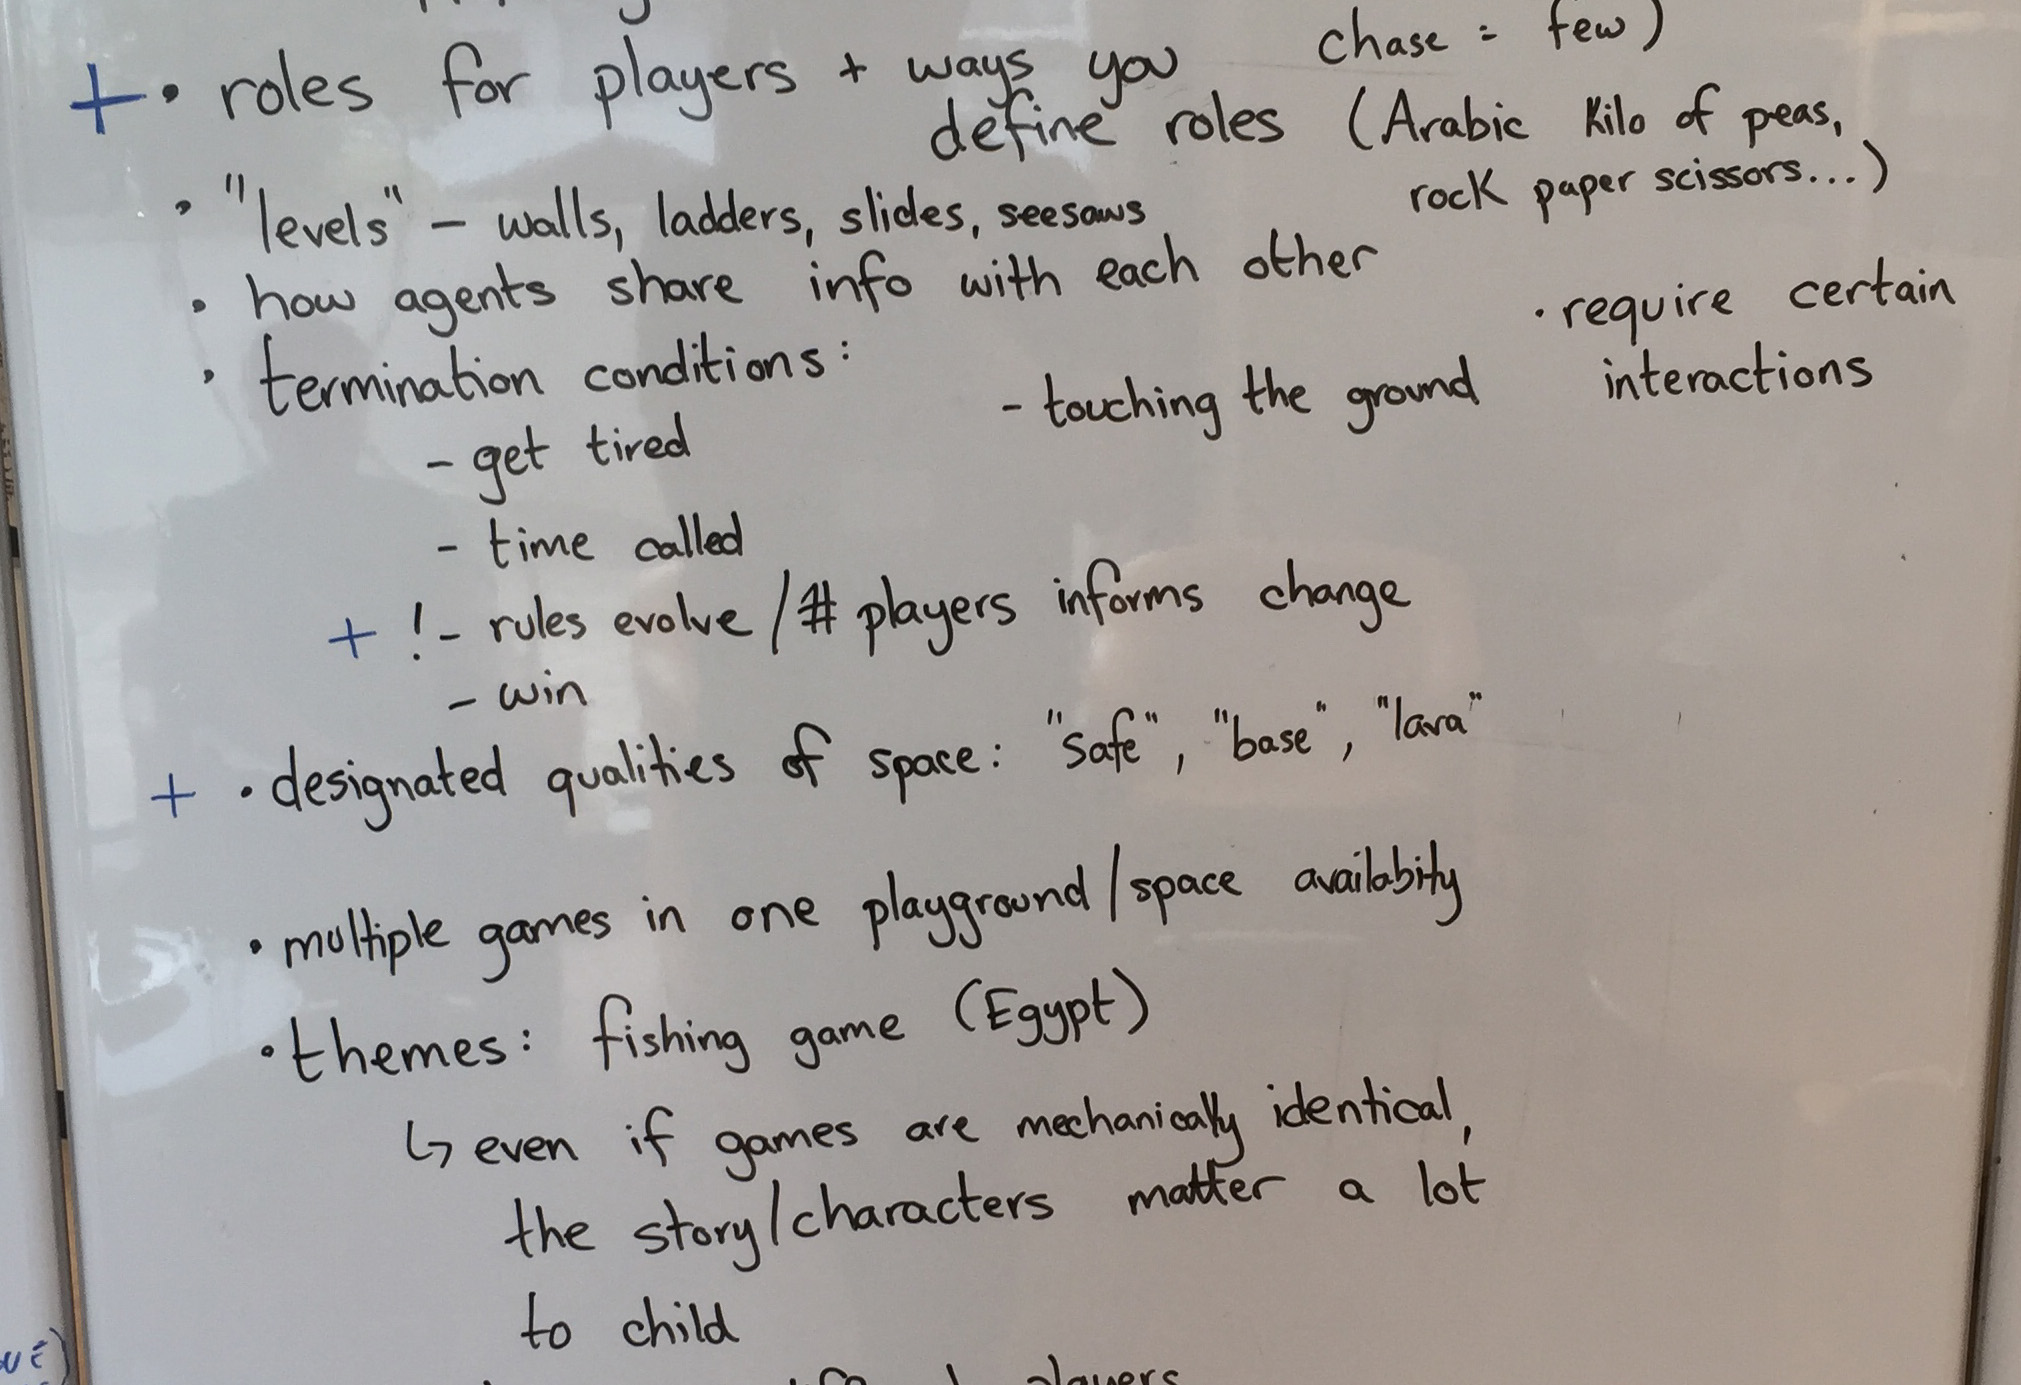 chase = few)
+ • roles for players + ways you
define roles (Arabic Kilo of peas,
rock paper scissors...)
• "levels" - walls, ladders, slides, seesaws
• how agents share info with each other
• require certain
interactions
• termination conditions:
- touching the ground
- get tired
- time called
+ !- rules evolve / # players informs change
- win
+ • designated qualities of space: "safe", "base", "lava"
• multiple games in one playground/space availabity
• themes: fishing game (Egypt)
↳ even if games are mechanically identical,
the story/characters matter a lot
to child
players